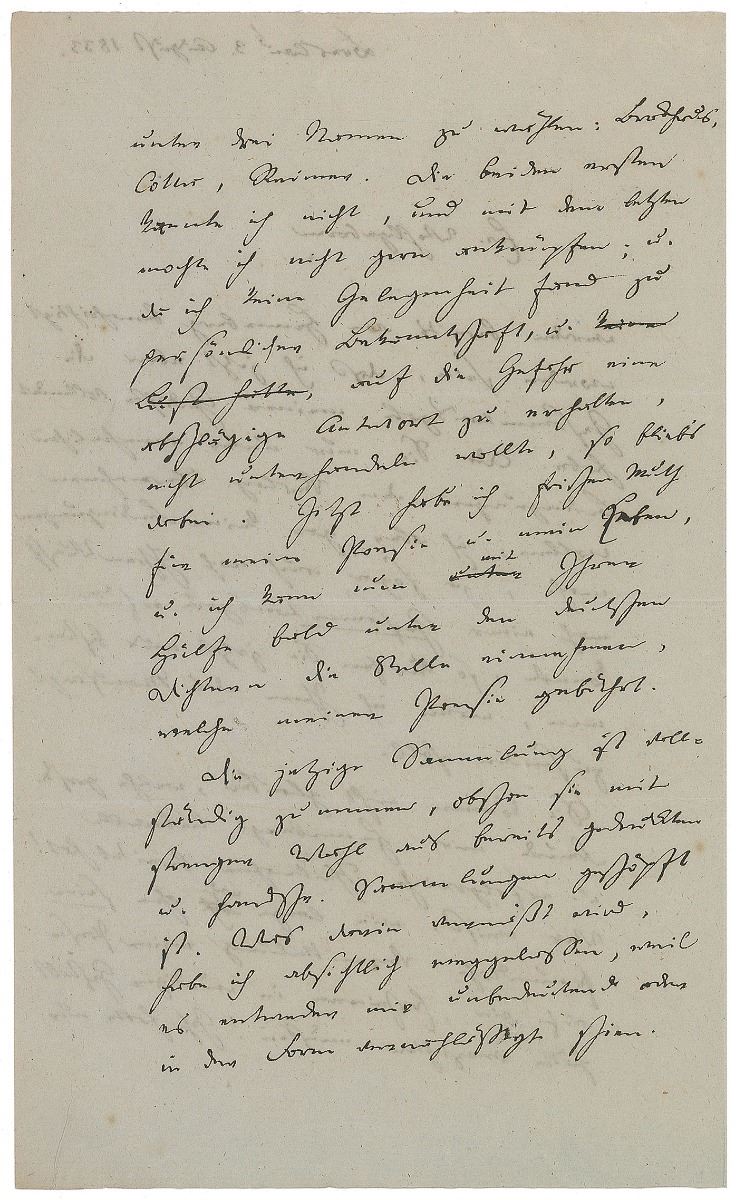 unter drei Namen zu wählen: Brockhaus,
Cotta, Reimer. Die beiden ersten
kannte ich nicht, und mit dem letzten
mochte ich nicht gern anknüpfen; u.
da ich keine Gelegenheit fand zu
persönlicher Bekanntschaft, u. keine
Lust hatte, auf die Gefahr eine
abschlägige Antwort zu erhalten,
nicht unterhandeln wollte, so blieb's
dabei. Jetzt habe ich frischen Muth
für meine Poesie u. mein Leben,
mit
u. ich kann nun unter Ihrer
Hülfe bald unter den deutschen
Dichtern die Stelle einnehmen,
welche meiner Poesie gebührt.
Die jetzige Sammlung ist voll-
ständig zu nennen, obschon sie mit
strenger Wahl aus bereits gedruckten
u. handschr. Sammlungen geschöpft
ist. Was darin vermißt wird,
habe ich absichtlich weggelassen, weil
es entweder mir unbedeutend oder
in der Form vernachlässigt schien.